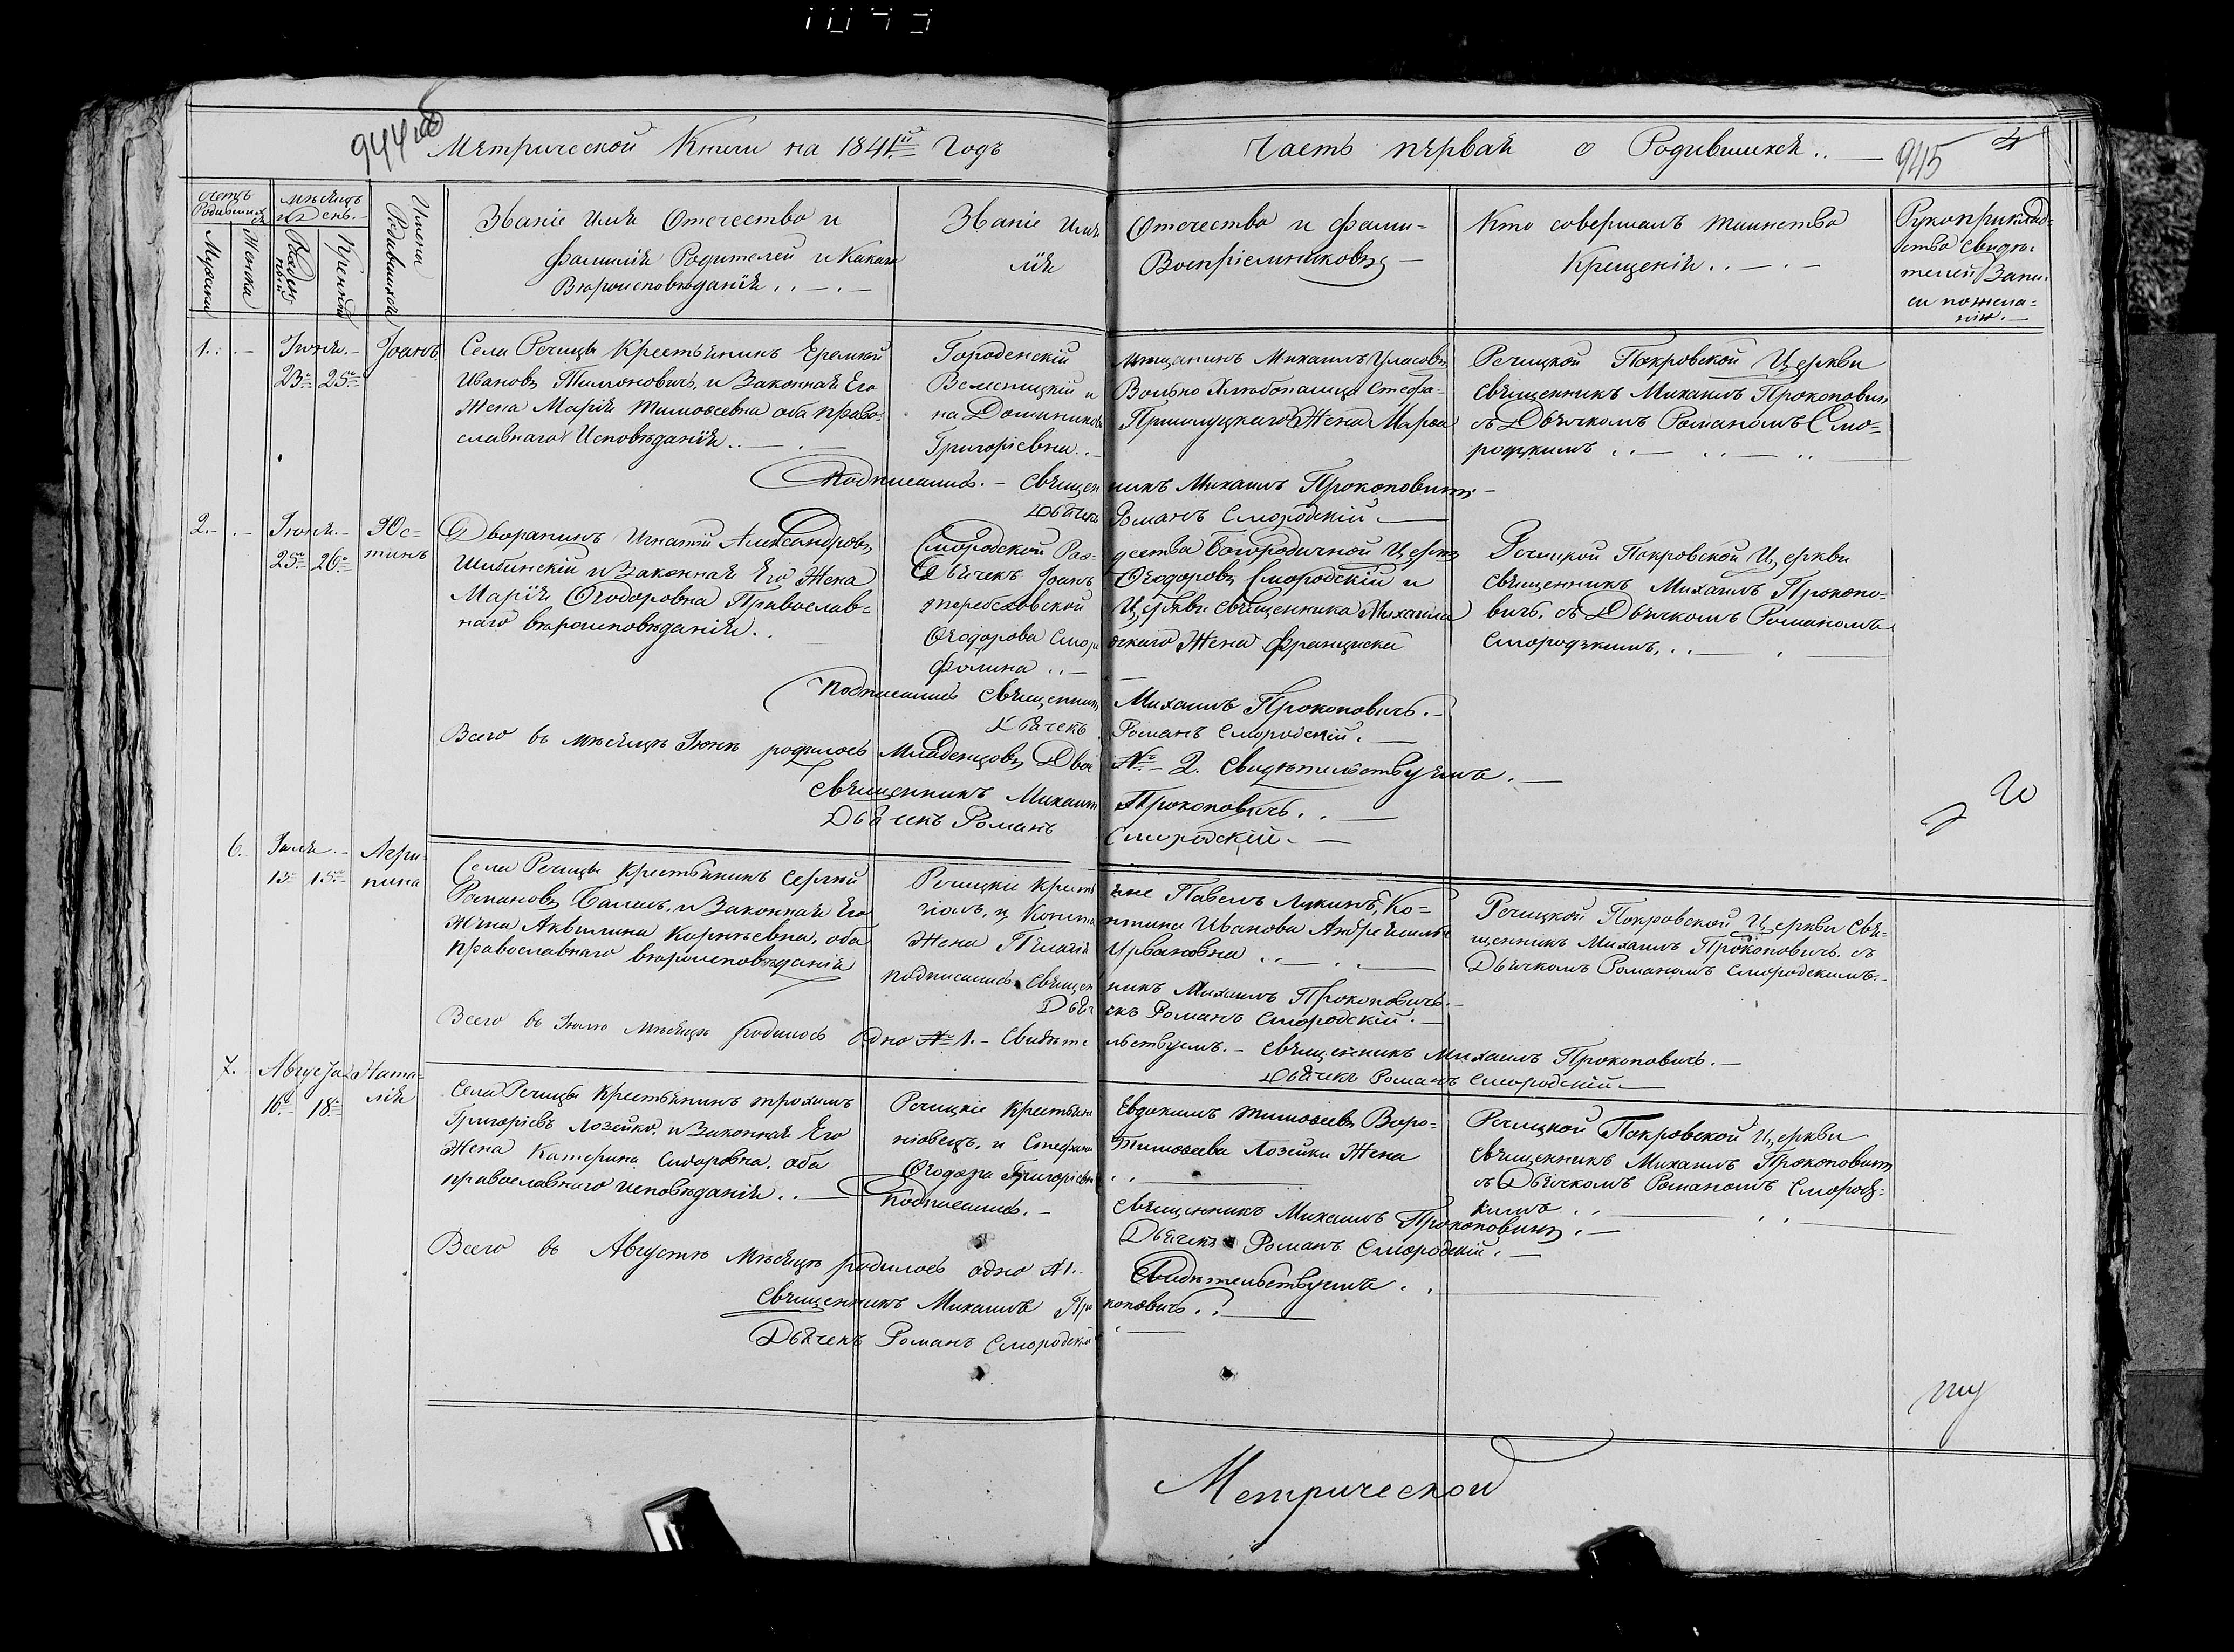 944 об
Метрической Книги на 1841й Годъ
Часть первая о Родившихся
945
4
счетъ Родившихся
Мужска
Женска
мѣсяцъ и День
Рожденій
Крещенія
Имена Родившихся
Званіе имя Отечество и
фамилія Родителей и Какаго
Вѣроисповѣданія
Званіе Имя Отечество и фами-
лія Воспріемниковъ
Кто совершалъ таинства
Крещенія
Рукоприклад-
ства свидѣ-
телей Запи-
си по жела-
нію
1.
Іюня
23 25
Іоанъ
Села Речицы Крестьянинъ Еремѣй
Ивановъ Тимоновичъ, и Законная Его
Жена Марія Тимоѳеевна оба право-
славнаго Исповѣданія
Городенскій мѣщанинъ Михаилъ Уласовъ
и Вольно Хлѣбопашца Стефа-
на Доминикова Жена Марѳа
Григоріевна
Речицкой Покровской Церкви
Священникъ Михаилъ Прокоповичъ
съ Дьячкомъ Романомъ Смо-
родскимъ
Подписались Священникъ Михаилъ Прокоповичъ
Дьячекъ Романъ Смородскій
2.
Іюня
25 26
Юс-
тинъ
Дворанинъ Игнатій Александровъ
Шибинскій и Законная Его Жена
Марія Ѳеодоровна Православ-
наго вѣроисповѣданія
Смородской Рождества Богородичной Церкви
Дьячекъ Іоанъ Ѳеодоровъ Смородскій и
Теребежовской Церкви Священника Михаила
Ѳеодорова Смородскаго Жена Франциска
Речицкой Покровской Церкви
Священникъ Михаилъ Прокопо-
вичъ, съ Дьячкомъ Романомъ
Смородскимъ
Подписались Священникъ Михаилъ Прокоповичъ
Дьячекъ Романъ Смородскій
Всего въ мѣсяцѣ Іюнѣ родилось Младенцовъ Двое № 2. Свидѣтельствуемъ
Священникъ Михаилъ Прокоповичъ
Дьячекъ Романъ Смородскій
6.
Іюля
13 15
Агри-
пина
Села Речицы Крестьянинъ Сергѣй
Романовъ и Законная Его
Жена Аквилина Корнѣевна, оба
Православнаго вѣроисповѣданія
Речицкіе Крестьяне Павелъ Лукинъ, Ко-
и Константина Иванова
Жена Пелагія Урвановна
Речицкой Покровской Церкви Свя-
щенникъ Михаилъ Прокоповичъ съ
Дьячкомъ Романомъ Смородскимъ
Подписались Священникъ Михаилъ Прокоповичъ
Дьячекъ Романъ Смородскій
Всего въ Іюлю Мѣсяцѣ родилось Одно № 1. Свидѣтельствуемъ. Священникъ Михаилъ Прокоповичъ
Дьячекъ Романъ Смородскій
7.
Августа
16 18
Ната-
лія
Села Речицы Крестьянинъ Трохимъ
Григоріевъ Лозейко, и Законная Его
Жена Катерина Сидоровна, оба
православнаго исповѣданія
Речицкіе Крестьяне Евдокимъ Тимоѳеевъ Воро-
новецъ, и Стефана Тимоѳеева Лозейки Жена
Ѳеодора Григоріевна
Речицкой Покровской Церкви
Священникъ Михаилъ Прокоповичъ
съ Дьячкомъ Романомъ Смородс-
кимъ
Подписались
Священникъ Михаилъ Прокоповичъ
Дьячекъ Романъ Смородскій
Всего въ Августѣ Мѣсяцѣ родилось одно №1. Свидѣтельствуемъ
Священникъ Михаилъ Прокоповичъ
Дьячекъ Романъ Смородскій
Метрической